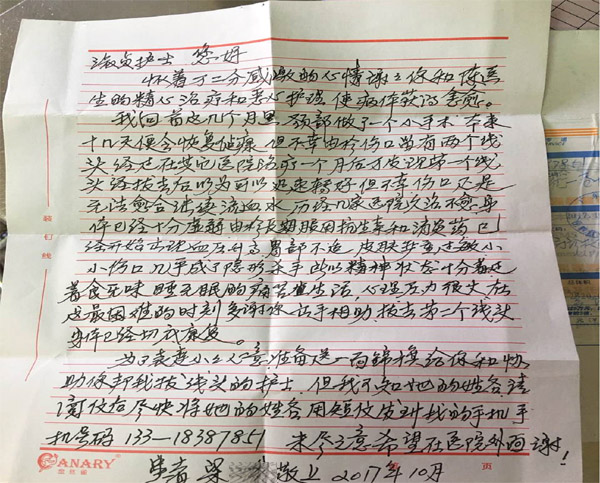 淑贞护士 您好
怀着十二分感激的心情谢谢你和陈医
生的精心治疗和悉心护理使病体获得愈愈。
我回首这几个月里 颈部做了一个小手术本来
十几天便会恢复健康但不幸由于伤口留有两个线
头经过在其它医院治疗一个月后才发现第一个线
头经拔去后以为可以迅速转好但不幸伤口还是
无法愈合继续流血水历经几家医院久治不愈身
体已经十分虚弱由于长期服因抗生素和消炎药已
经开始出现血压升高胃部不适 皮肤 过敏小
小伤口几乎成了隐形杀手 以精神状态十分差过
着食无味睡无眠的痛苦生活,心理压力很大在
这最困难的时刻多谢你出手相助,拔去第二个线头
身体已经彻底康复。
为了表达小小心意准备送一面锦旗给你和协
助你帮我拔线头的护士,但我不知她的姓名,请
阅信后尽快将她的姓名用短信发到我的手机手
机号码 133-18387851 未尽之意希望在医院外面谢!
患者 梁 敬上 2017年10月
装订线
CANARY
页